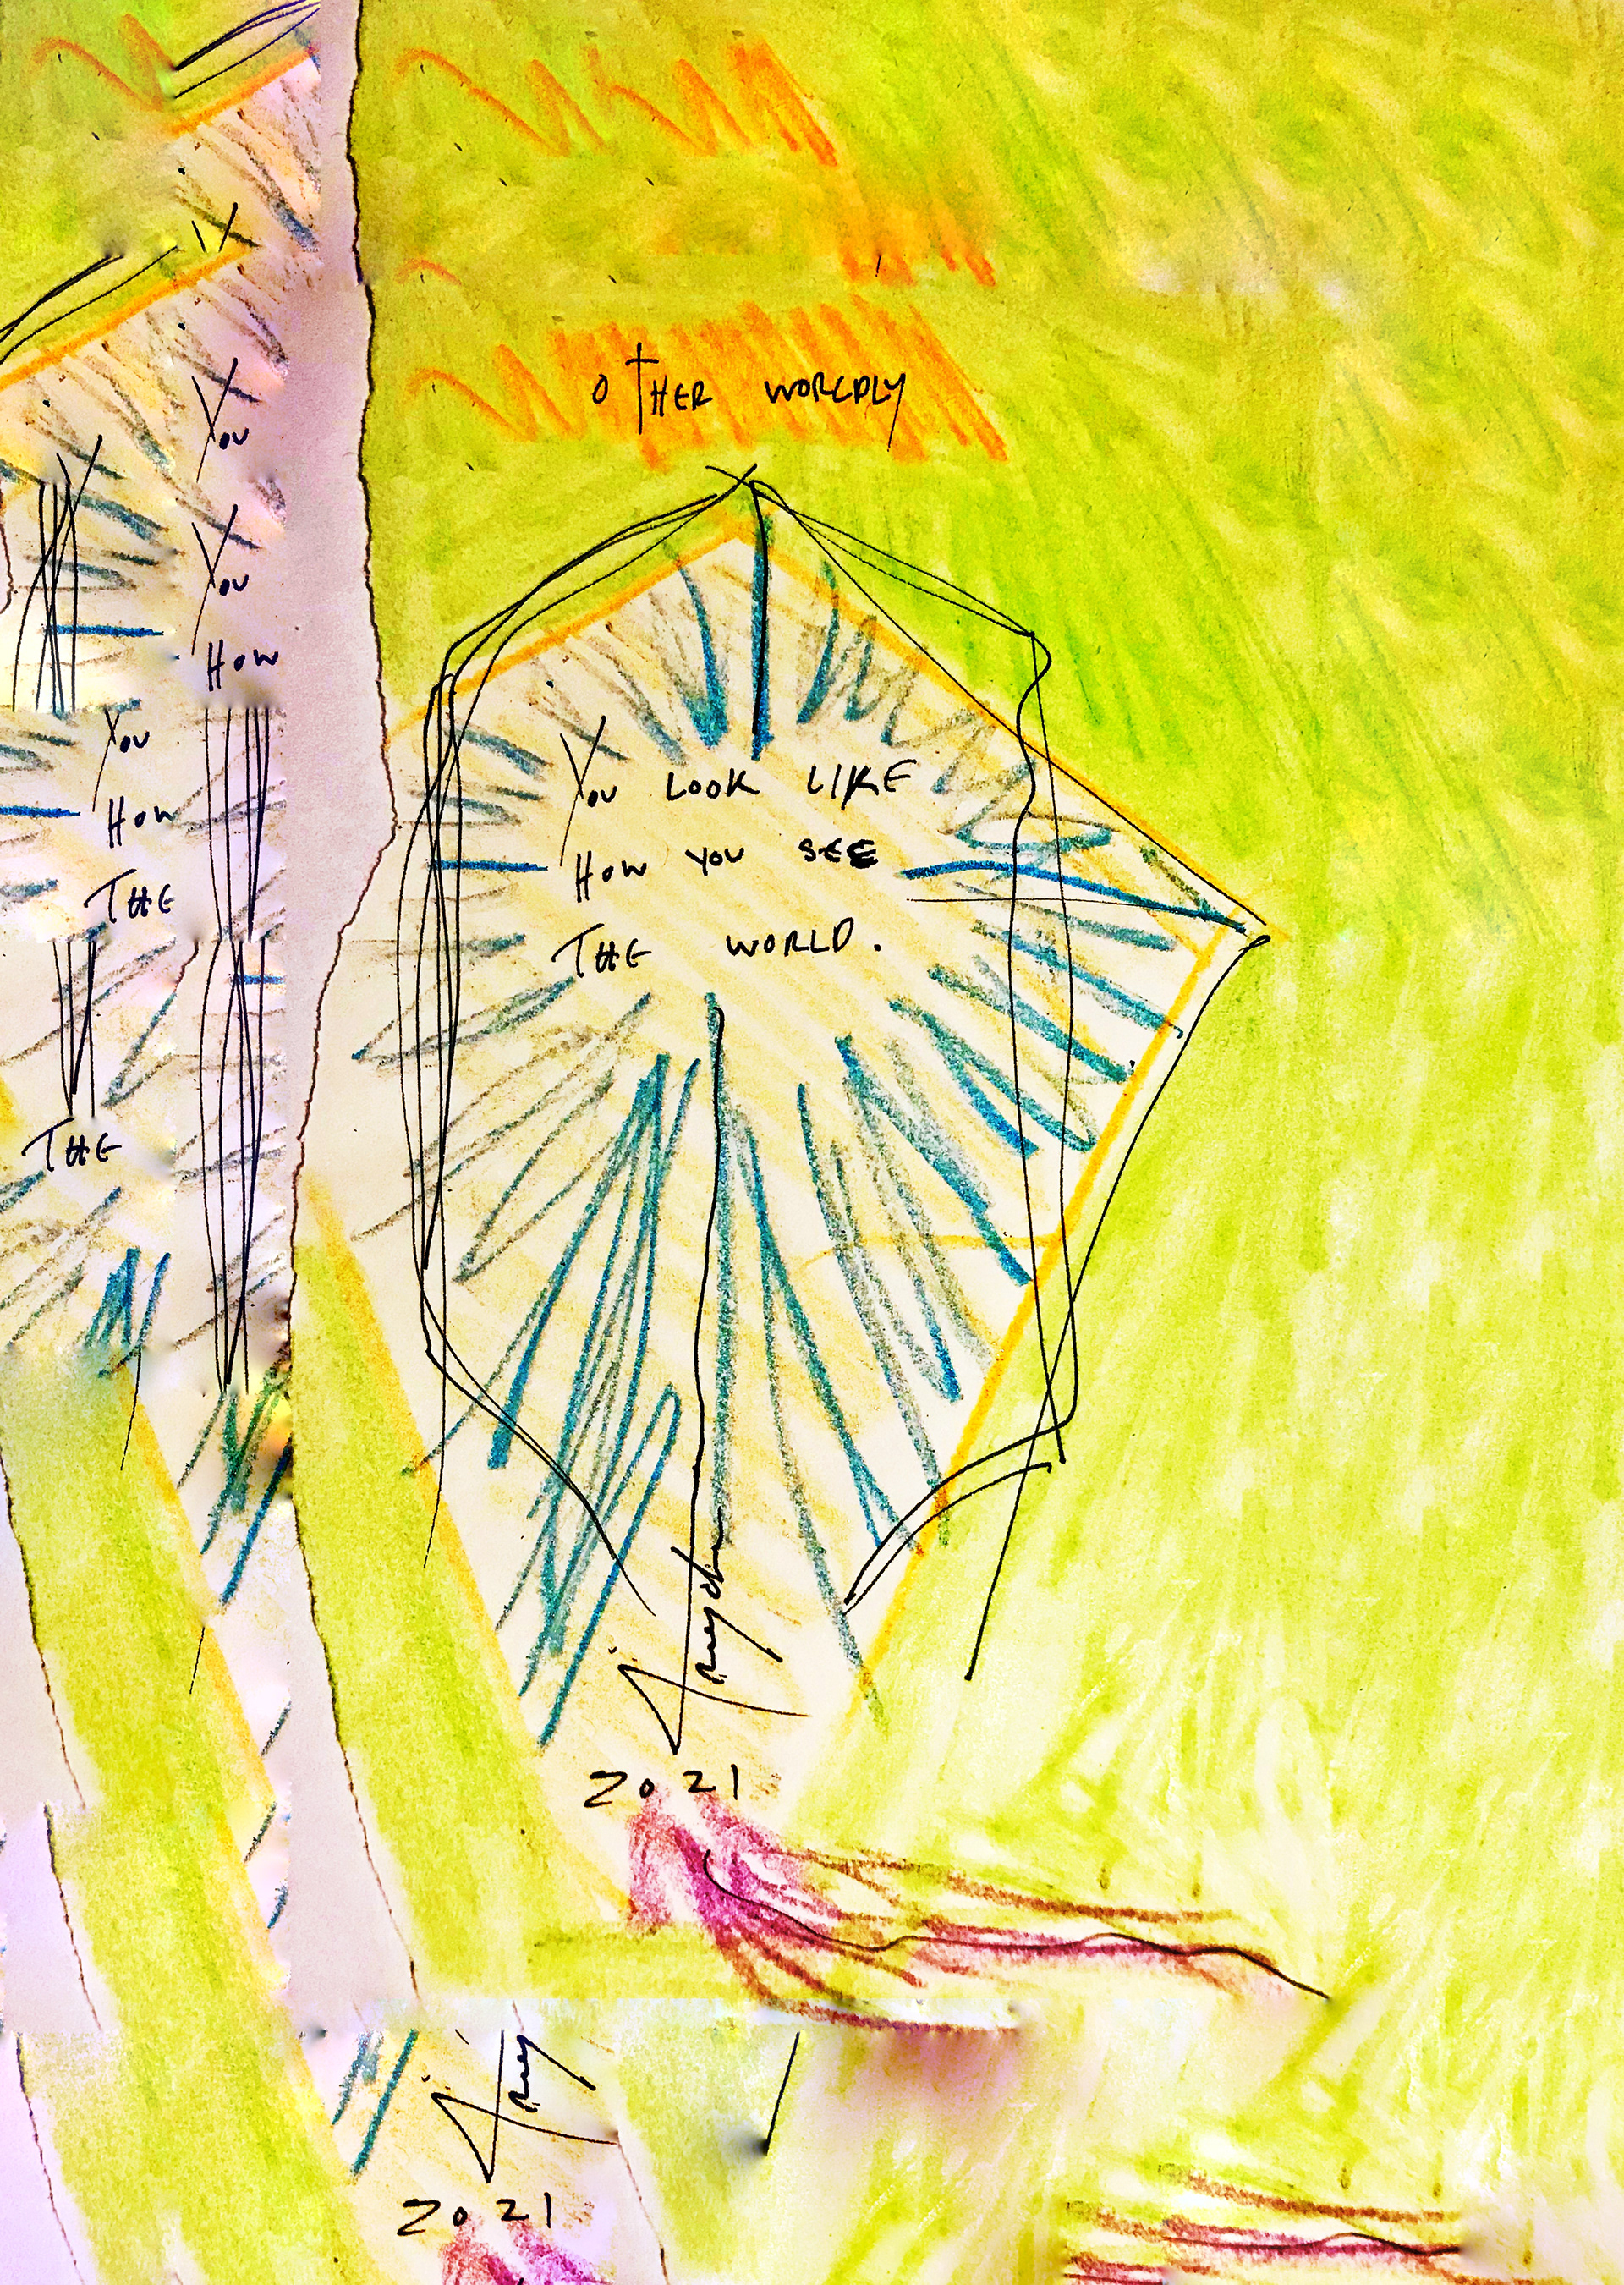 OTHER WORLDLY
YOU LOOK LIKE
HOW YOU SEE
THE WORLD.
2021
YOU
YOU
HOW
YOU
HOW
THE
THE
2021